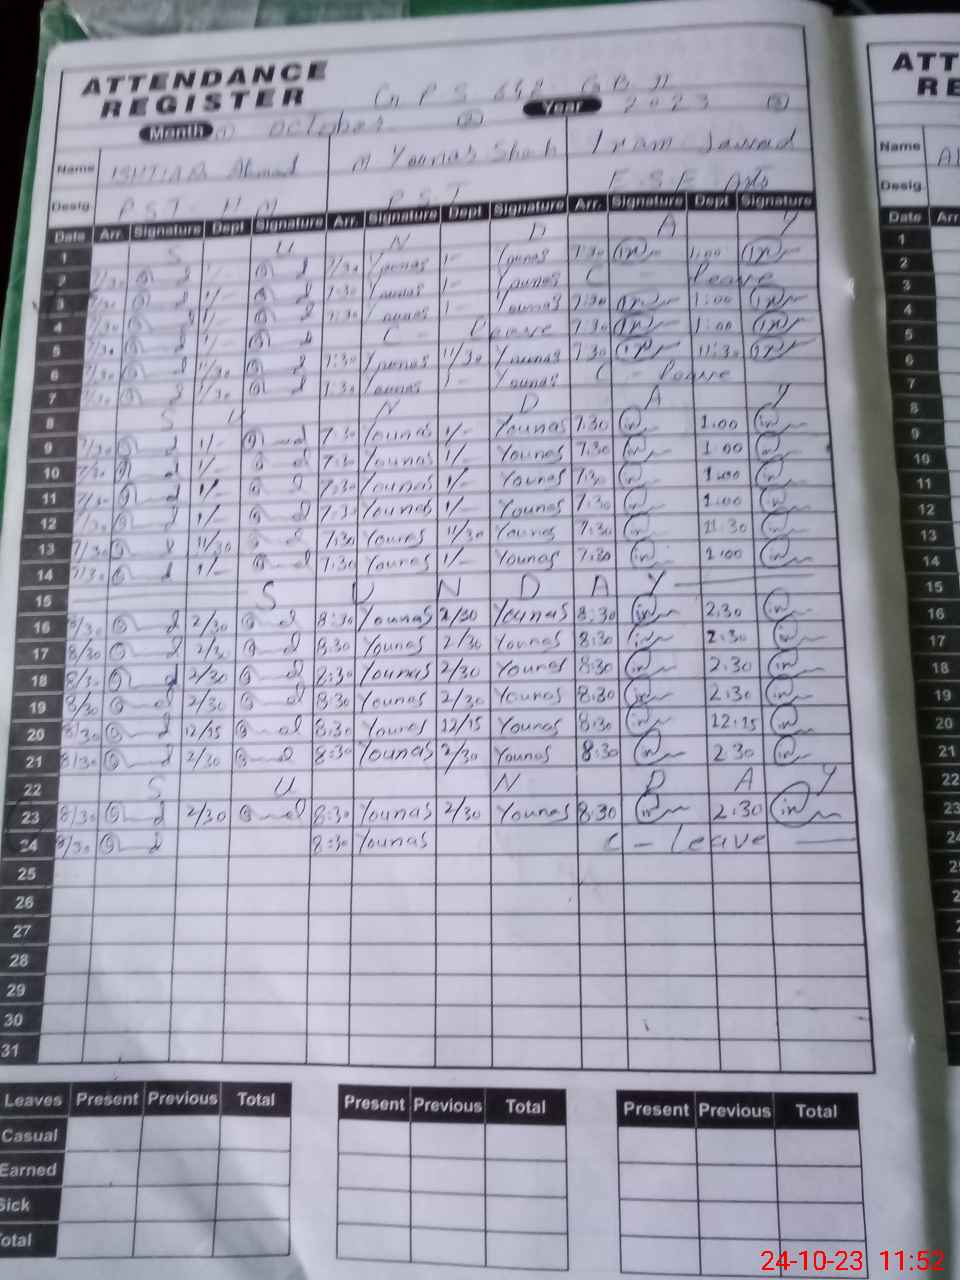 ATTENDANCE REGISTER
G P S 648 G B
Month ① October ② Year 2023 ③
Name Ishtiaq Ahmad M Younas Shah Iram Jawad
Desig. P.S.T H M P.S.T E.S.E Arts
Date Arr. Signature Dept Signature Arr. Signature Dept Signature Arr. Signature Dept Signature
1 S U N D A Y
2 7/30 1/- 7/30 Younas 1- Younas 7:30 1:00
3 7/30 1/- 7:30 Younas 1- Younas C leave
4 7/30 1/- 7:30 Younas 1- Younas 7:30 1:00
5 7/30 1/- C - leave 7:30 1:00
6 7/30 11/30 7:30 Younas 11/30 Younas 7:30 11:30
7 7/30 1/30 7:30 Younas 1- Younas C - leave
8 S U N D A Y
9 7/30 1/- 7:30 Younas 1/- Younas 7:30 1:00
10 7/30 1/- 7:30 Younas 1/- Younas 7:30 1:00
11 7/30 1/- 7:30 Younas 1/- Younas 7:30 1:00
12 7/30 1/- 7:30 Younas 1/- Younas 7:30 1:00
13 7/30 11/30 7:30 Younas 11/30 Younas 7:30 11:30
14 7/30 1/- 7:30 Younas 1/- Younas 7:30 1:00
15 S U N D A Y
16 8/30 2/30 8:30 Younas 2/30 Younas 8:30 2:30
17 8/30 2/30 8:30 Younas 2/30 Younas 8:30 2:30
18 8/30 2/30 8:30 Younas 2/30 Younas 8:30 2:30
19 8/30 2/30 8:30 Younas 2/30 Younas 8:30 2:30
20 8/30 12/15 8:30 Younas 12/15 Younas 8:30 12:15
21 8/30 2/30 8:30 Younas 2/30 Younas 8:30 2:30
22 S U N D A Y
23 8/30 2/30 8:30 Younas 2/30 Younas 8:30 2:30
24 8/30 8:30 Younas C - leave
25
26
27
28
29
30
31
Leaves Present Previous Total Present Previous Total Present Previous Total
Casual
Earned
Sick
Total
ATT
RE
Name
Desig.
Date Arr
1
2
3
4
5
6
7
8
9
10
11
12
13
14
15
16
17
18
19
20
21
22
23
24-10-23 11:52